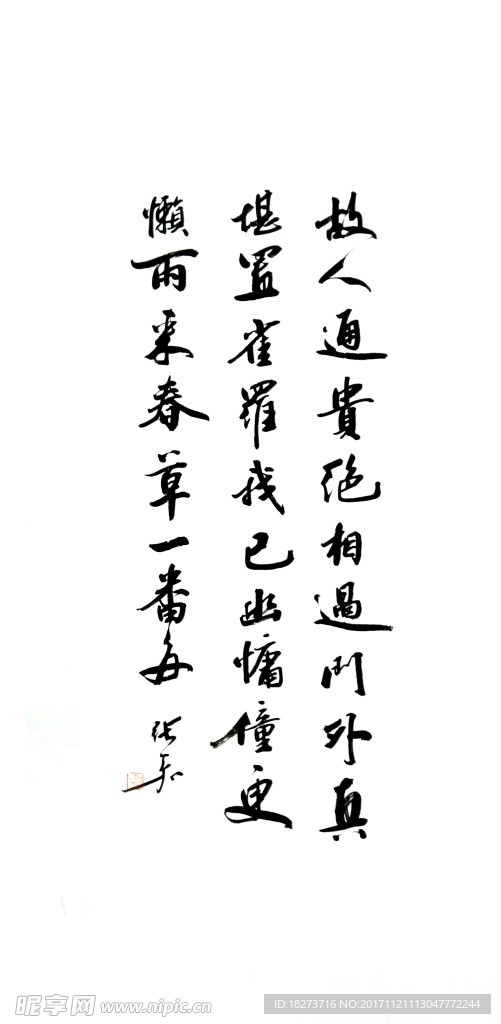 故人通貴絕相過門外真
堪置雀羅我已幽慵僮更
懶雨来春草一番多
昵享网 www.nipic.cn
ID:18273716 NO:20171121113047772244